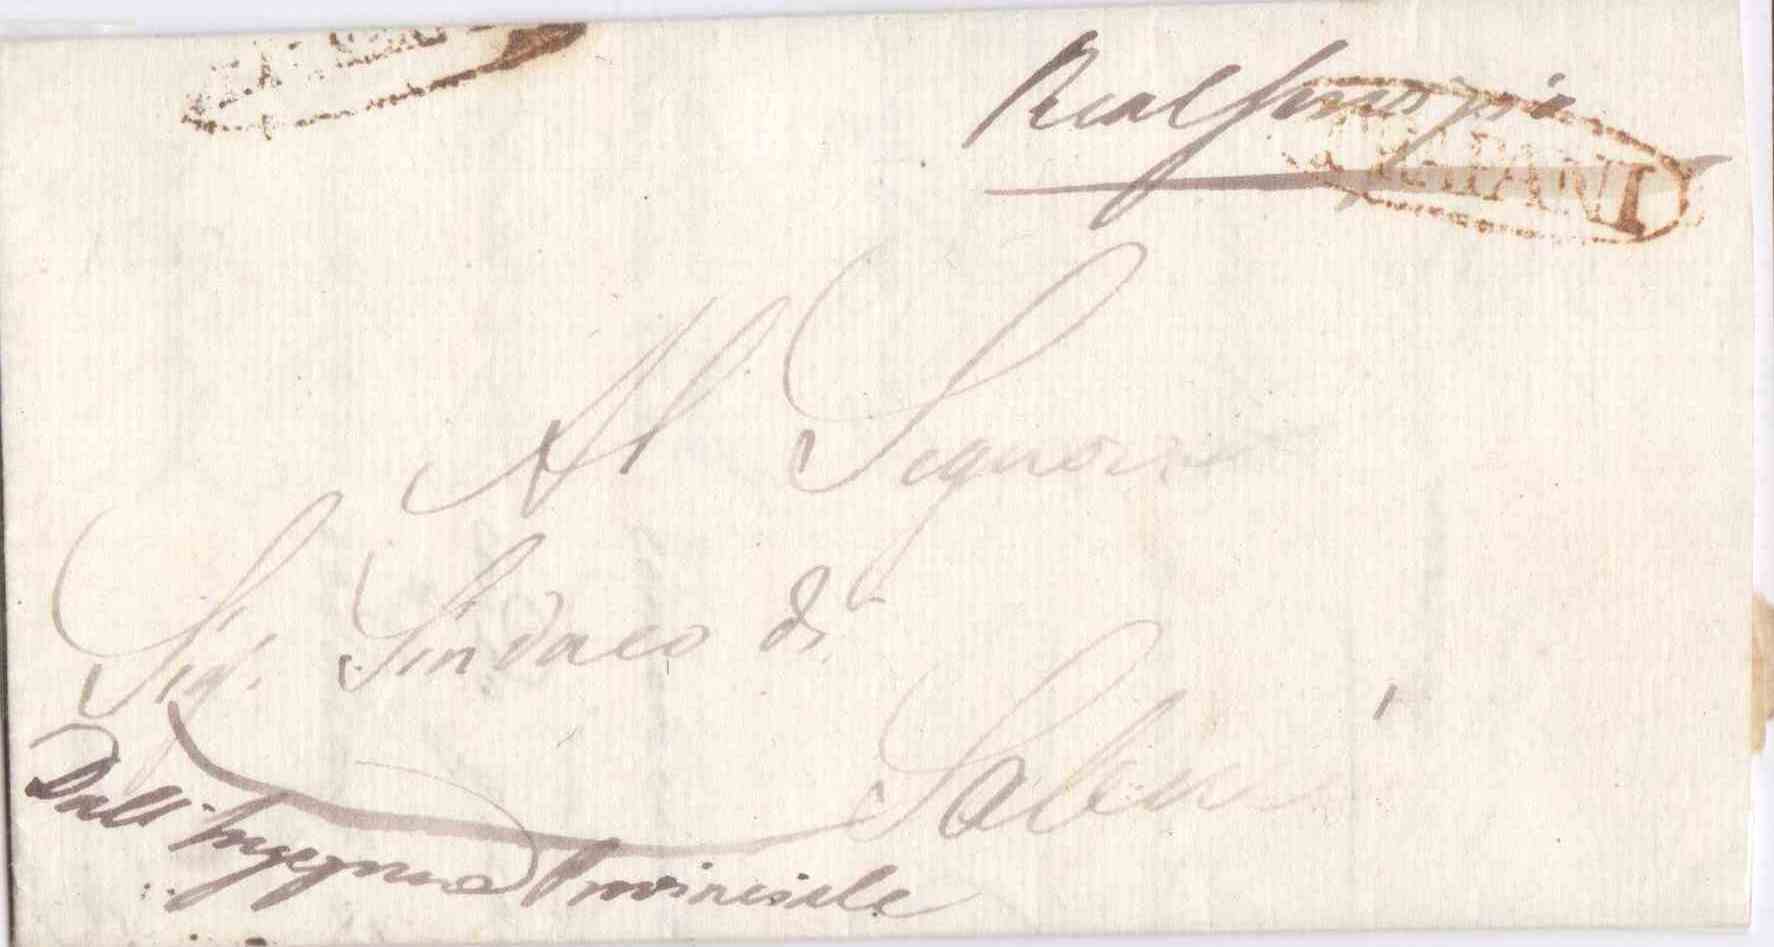 Real Servizio
TRAPANI
Al Signore
Sig. Sindaco di
Salemi
Dall'Ingegnere Provinciale